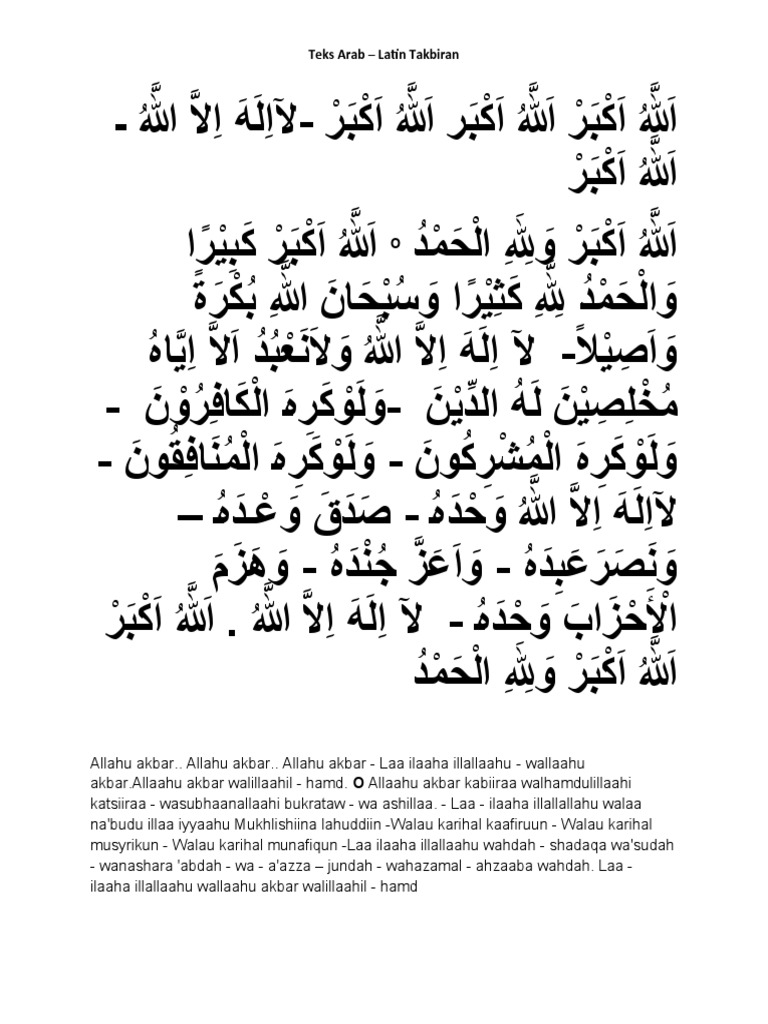 Teks Arab – Latin Takbiran
اَللَّهُ اَكْبَرْ اَللَّهُ اَكْبَر اَللَّهُ اَكْبَرْ -لآاِلَهَ اِلاَّ اللَّهُ -
اَللَّهُ اَكْبَرْ
اَللَّهُ اَكْبَرْ وَلِلَّهِ الْحَمْدُ ० اَللَّهُ اَكْبَرْ كَبِيْرًا
وَالْحَمْدُ لِلَّهِ كَثِيْرًا وَسُبْحَانَ اللَّهِ بُكْرَةً
وَاَصِيْلاً- لآ اِلَهَ اِلاَّ اللَّهُ وَلاَنَعْبُدُ اَلاَّ اِيَّاهُ
مُخْلِصِيْنَ لَهُ الدِّيْنَ -وَلَوْكَرِهَ الْكَافِرُوْنَ -
وَلَوْكَرِهَ الْمُشْرِكُونَ - وَلَوْكَرِهَ الْمُنَافِقُونَ -
لآاِلَهَ اِلاَّ اللَّهُ وَحْدَهُ - صَدَقَ وَعْـدَهُ –
وَنَصَرَعَبِدَهُ - وَاَعَزَّ جُنْدَهُ - وَهَزَمَ
الْأَحْزَابَ وَحْدَهُ - لآ اِلَهَ اِلاَّ اللَّهُ . اَللَّهُ اَكْبَرْ
اَللَّهُ اَكْبَرْ وَلِلَّهِ الْحَمْدُ
Allahu akbar.. Allahu akbar.. Allahu akbar - Laa ilaaha illallaahu - wallaahu
akbar.Allaahu akbar walillaahil - hamd. O Allaahu akbar kabiiraa walhamdulillaahi
katsiiraa - wasubhaanallaahi bukrataw - wa ashillaa. - Laa - ilaaha illallallahu walaa
na'budu illaa iyyaahu Mukhlishiina lahuddiin -Walau karihal kaafiruun - Walau karihal
musyrikun - Walau karihal munafiqun -Laa ilaaha illallaahu wahdah - shadaqa wa'sudah
- wanashara 'abdah - wa - a'azza – jundah - wahazamal - ahzaaba wahdah. Laa -
ilaaha illallaahu wallaahu akbar walillaahil - hamd